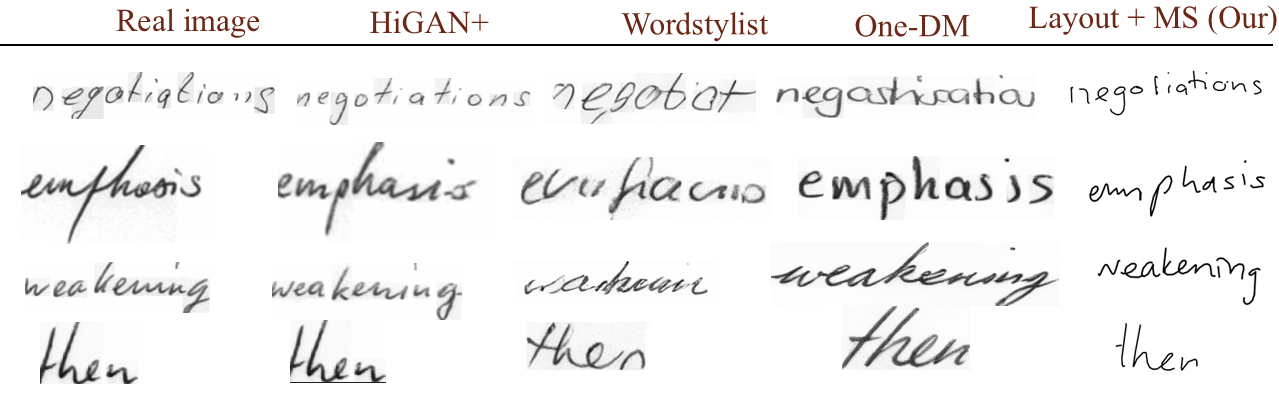 Real image HiGAN+ Wordstylist One-DM Layout + MS (Our)
negotiations negotiations negotiat negastiratia negotiations
emphasis emphasis emphasis emphasis
weakening weakening weakening weakening
then then then then then